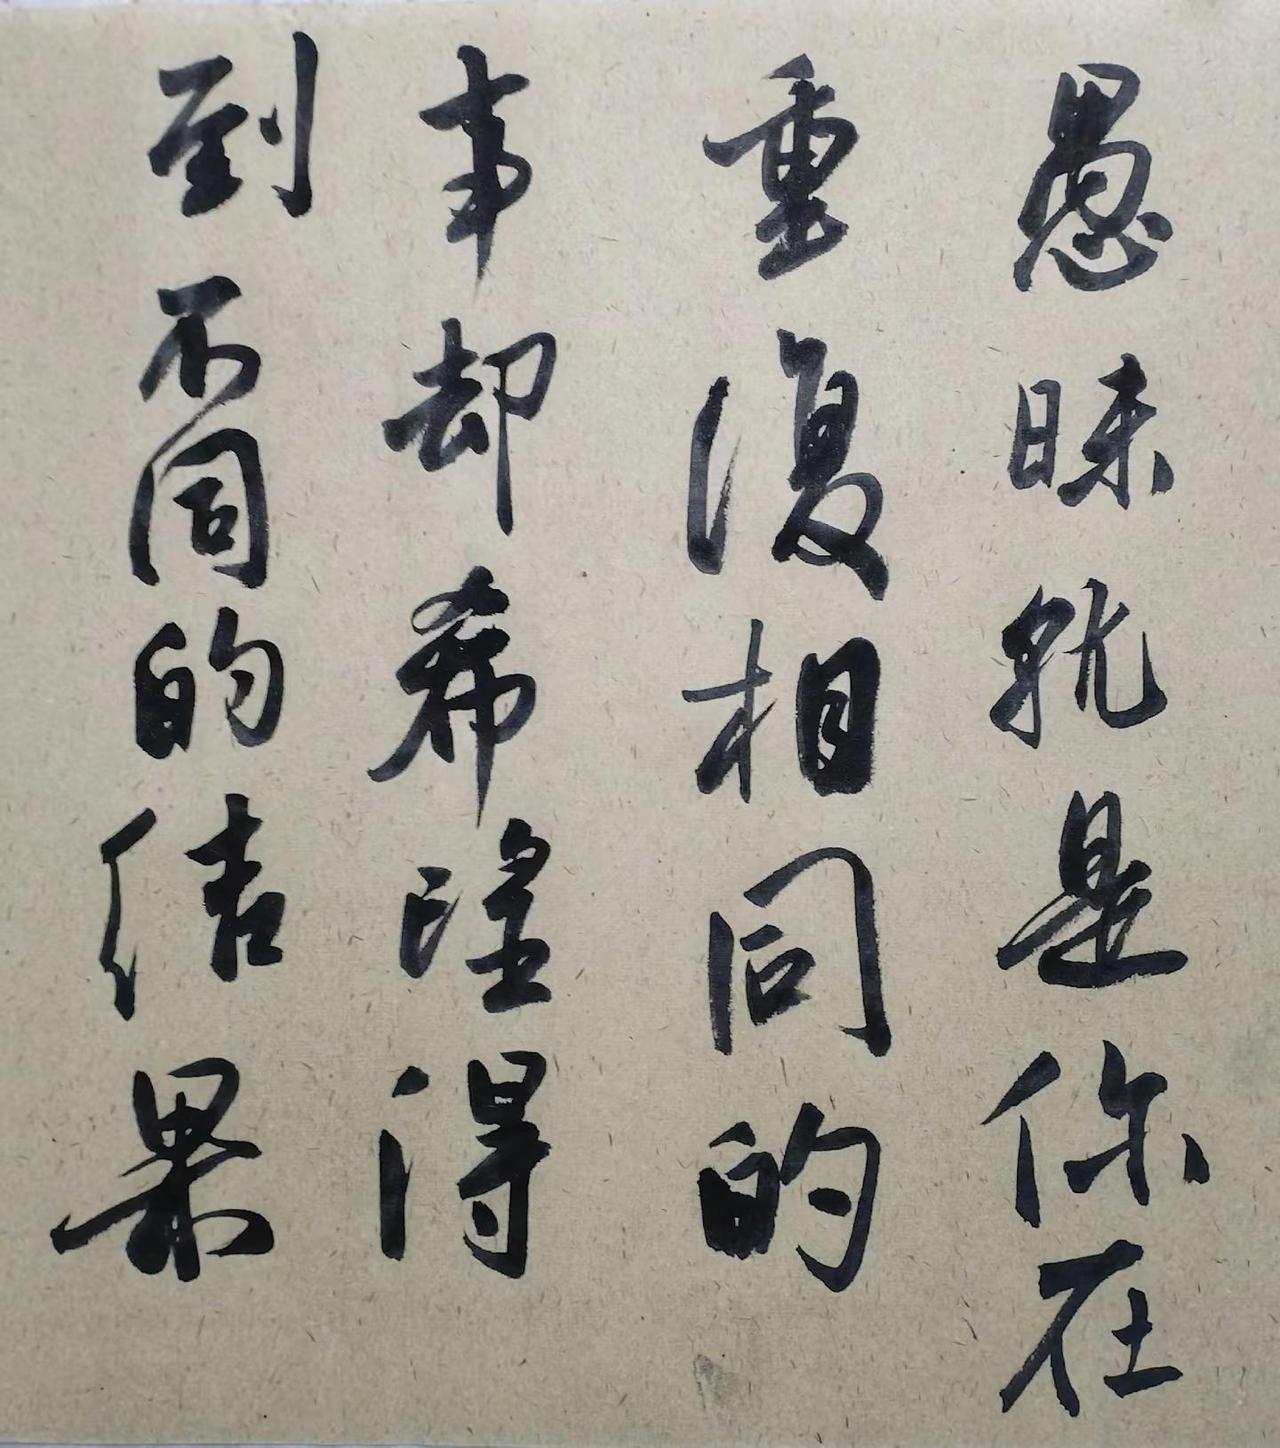 愚昧就是你在
重復相同的
事却希望得
到不同的结果